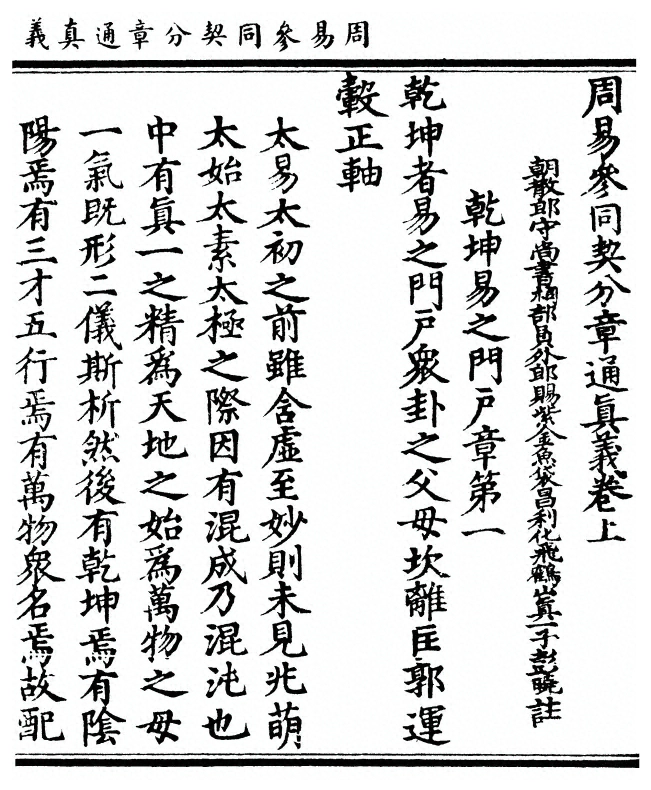 周易參同契分章通真義
周易參同契分章通眞義卷上
朝散郎守尚書祠部員外郎賜紫金魚袋昌利化飛鶴山眞一子彭曉註
乾坤易之門戸章第一
乾坤者易之門戸衆卦之父母坎離匡郭運
轂正軸
太易太初之前雖含虛至妙則未見兆萌
太始太素太極之際因有混成乃混沌也
中有眞一之精爲天地之始爲萬物之母
一氣既形二儀斯析然後有乾坤焉有陰
陽焉有三才五行焉有萬物衆名焉故配